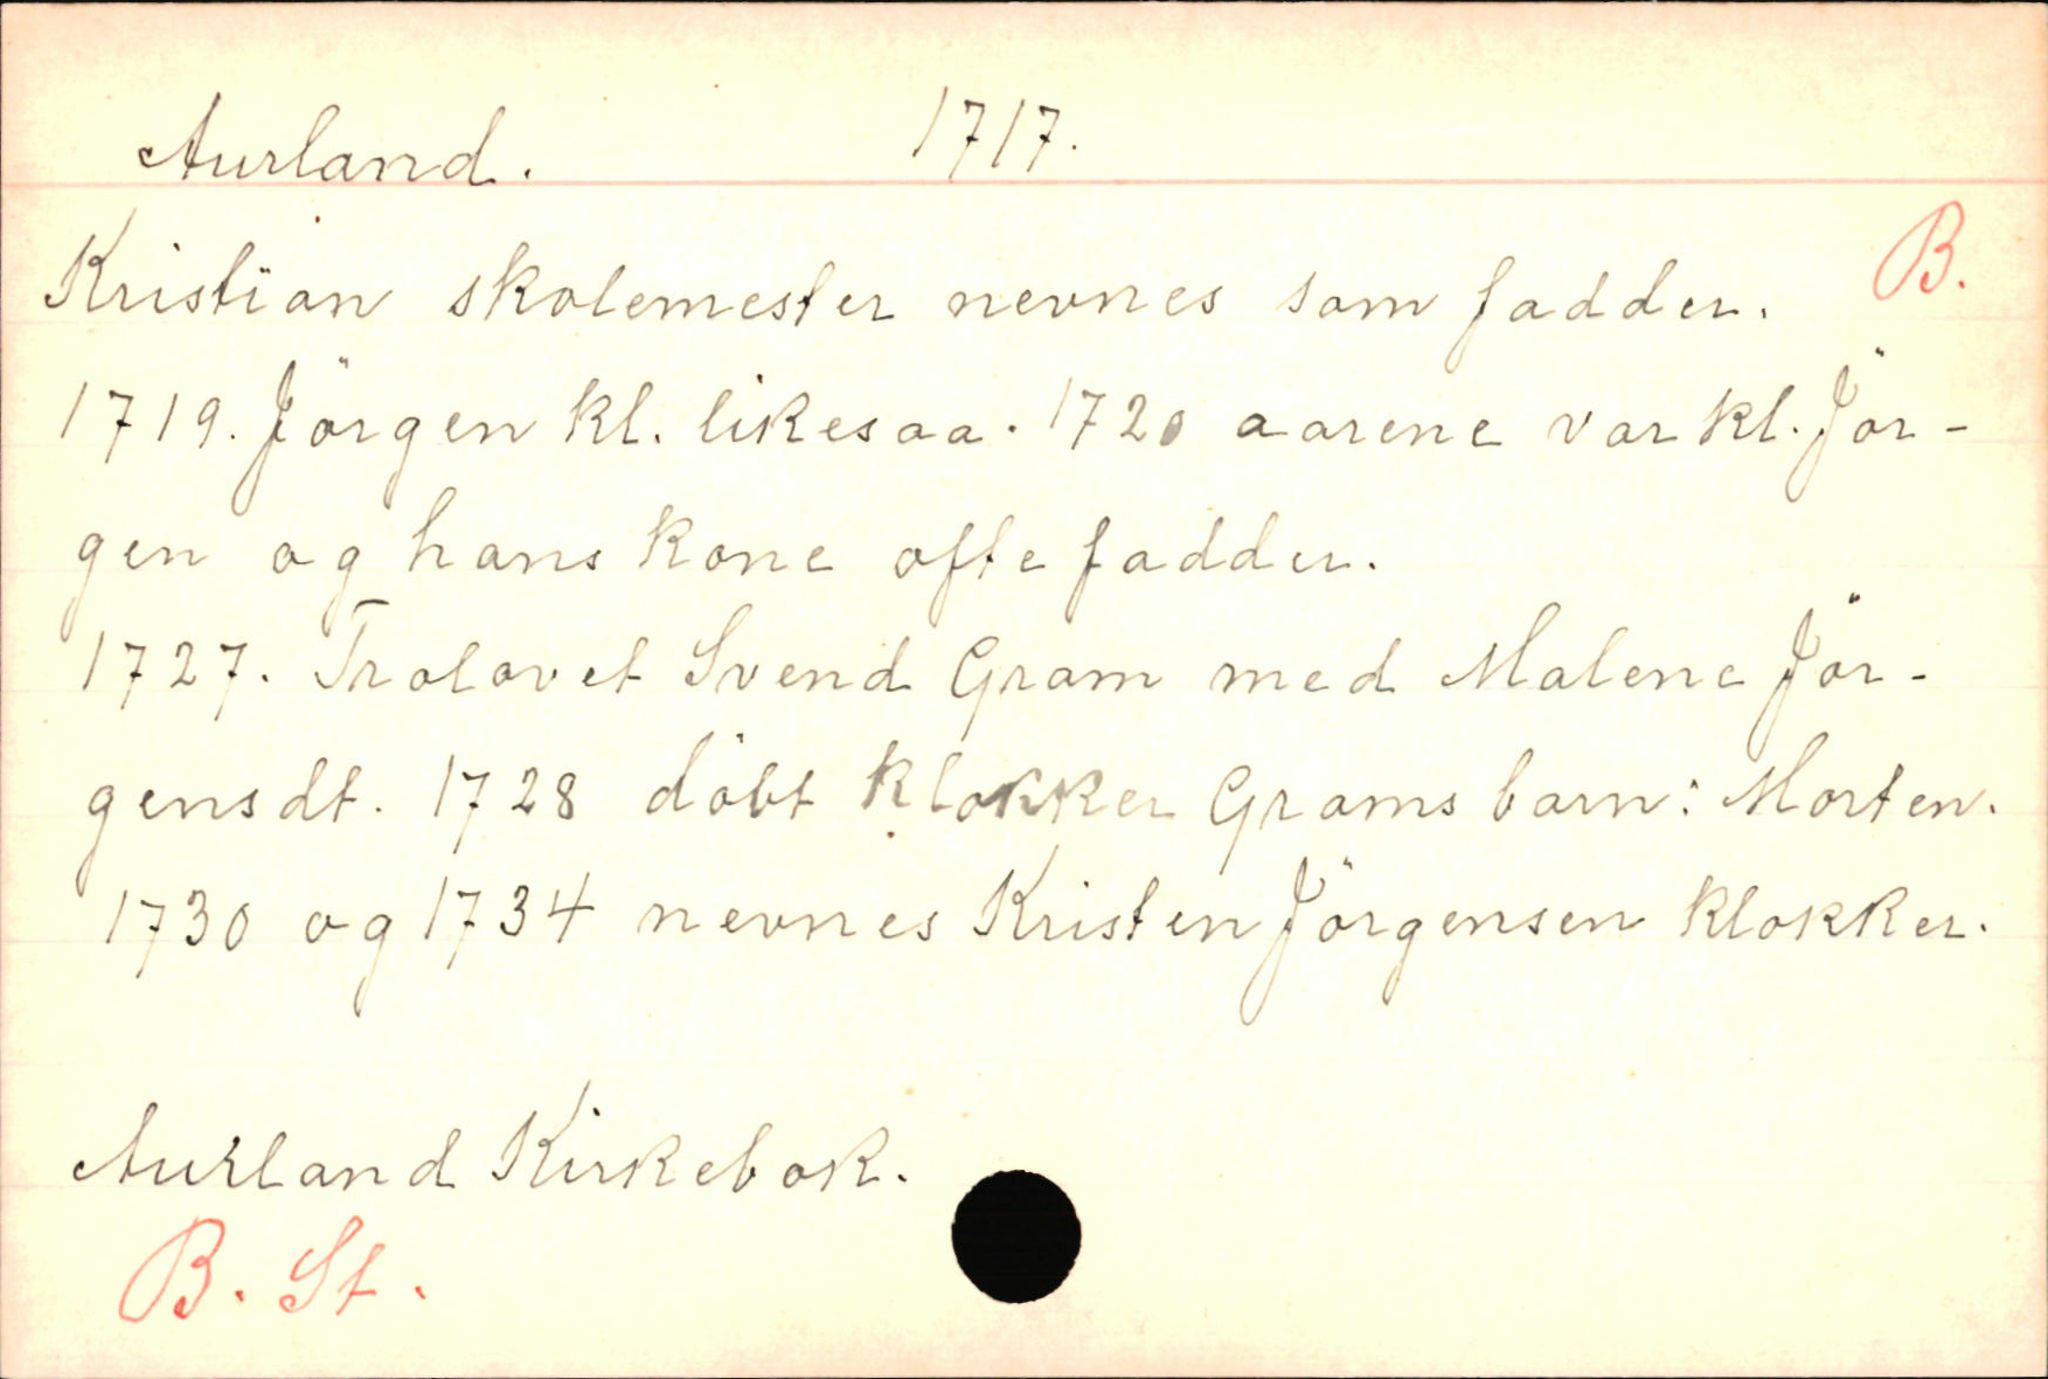 Aurland. 1717.
B.
Kristian skolemester nevnes som fadder.
1719. Jörgen kl. likesaa. 1720 aarene var kl. Jör-
gen og hans kone ofte fadder.
1727. Trolovet Svend Gram med Malene Jör-
gensdt. 1728 döbt klokker Grams barn: Morten.
1730 og 1734 nevnes Kristen Jörgensen klokker.
Aurland Kirkebok.
B. St.